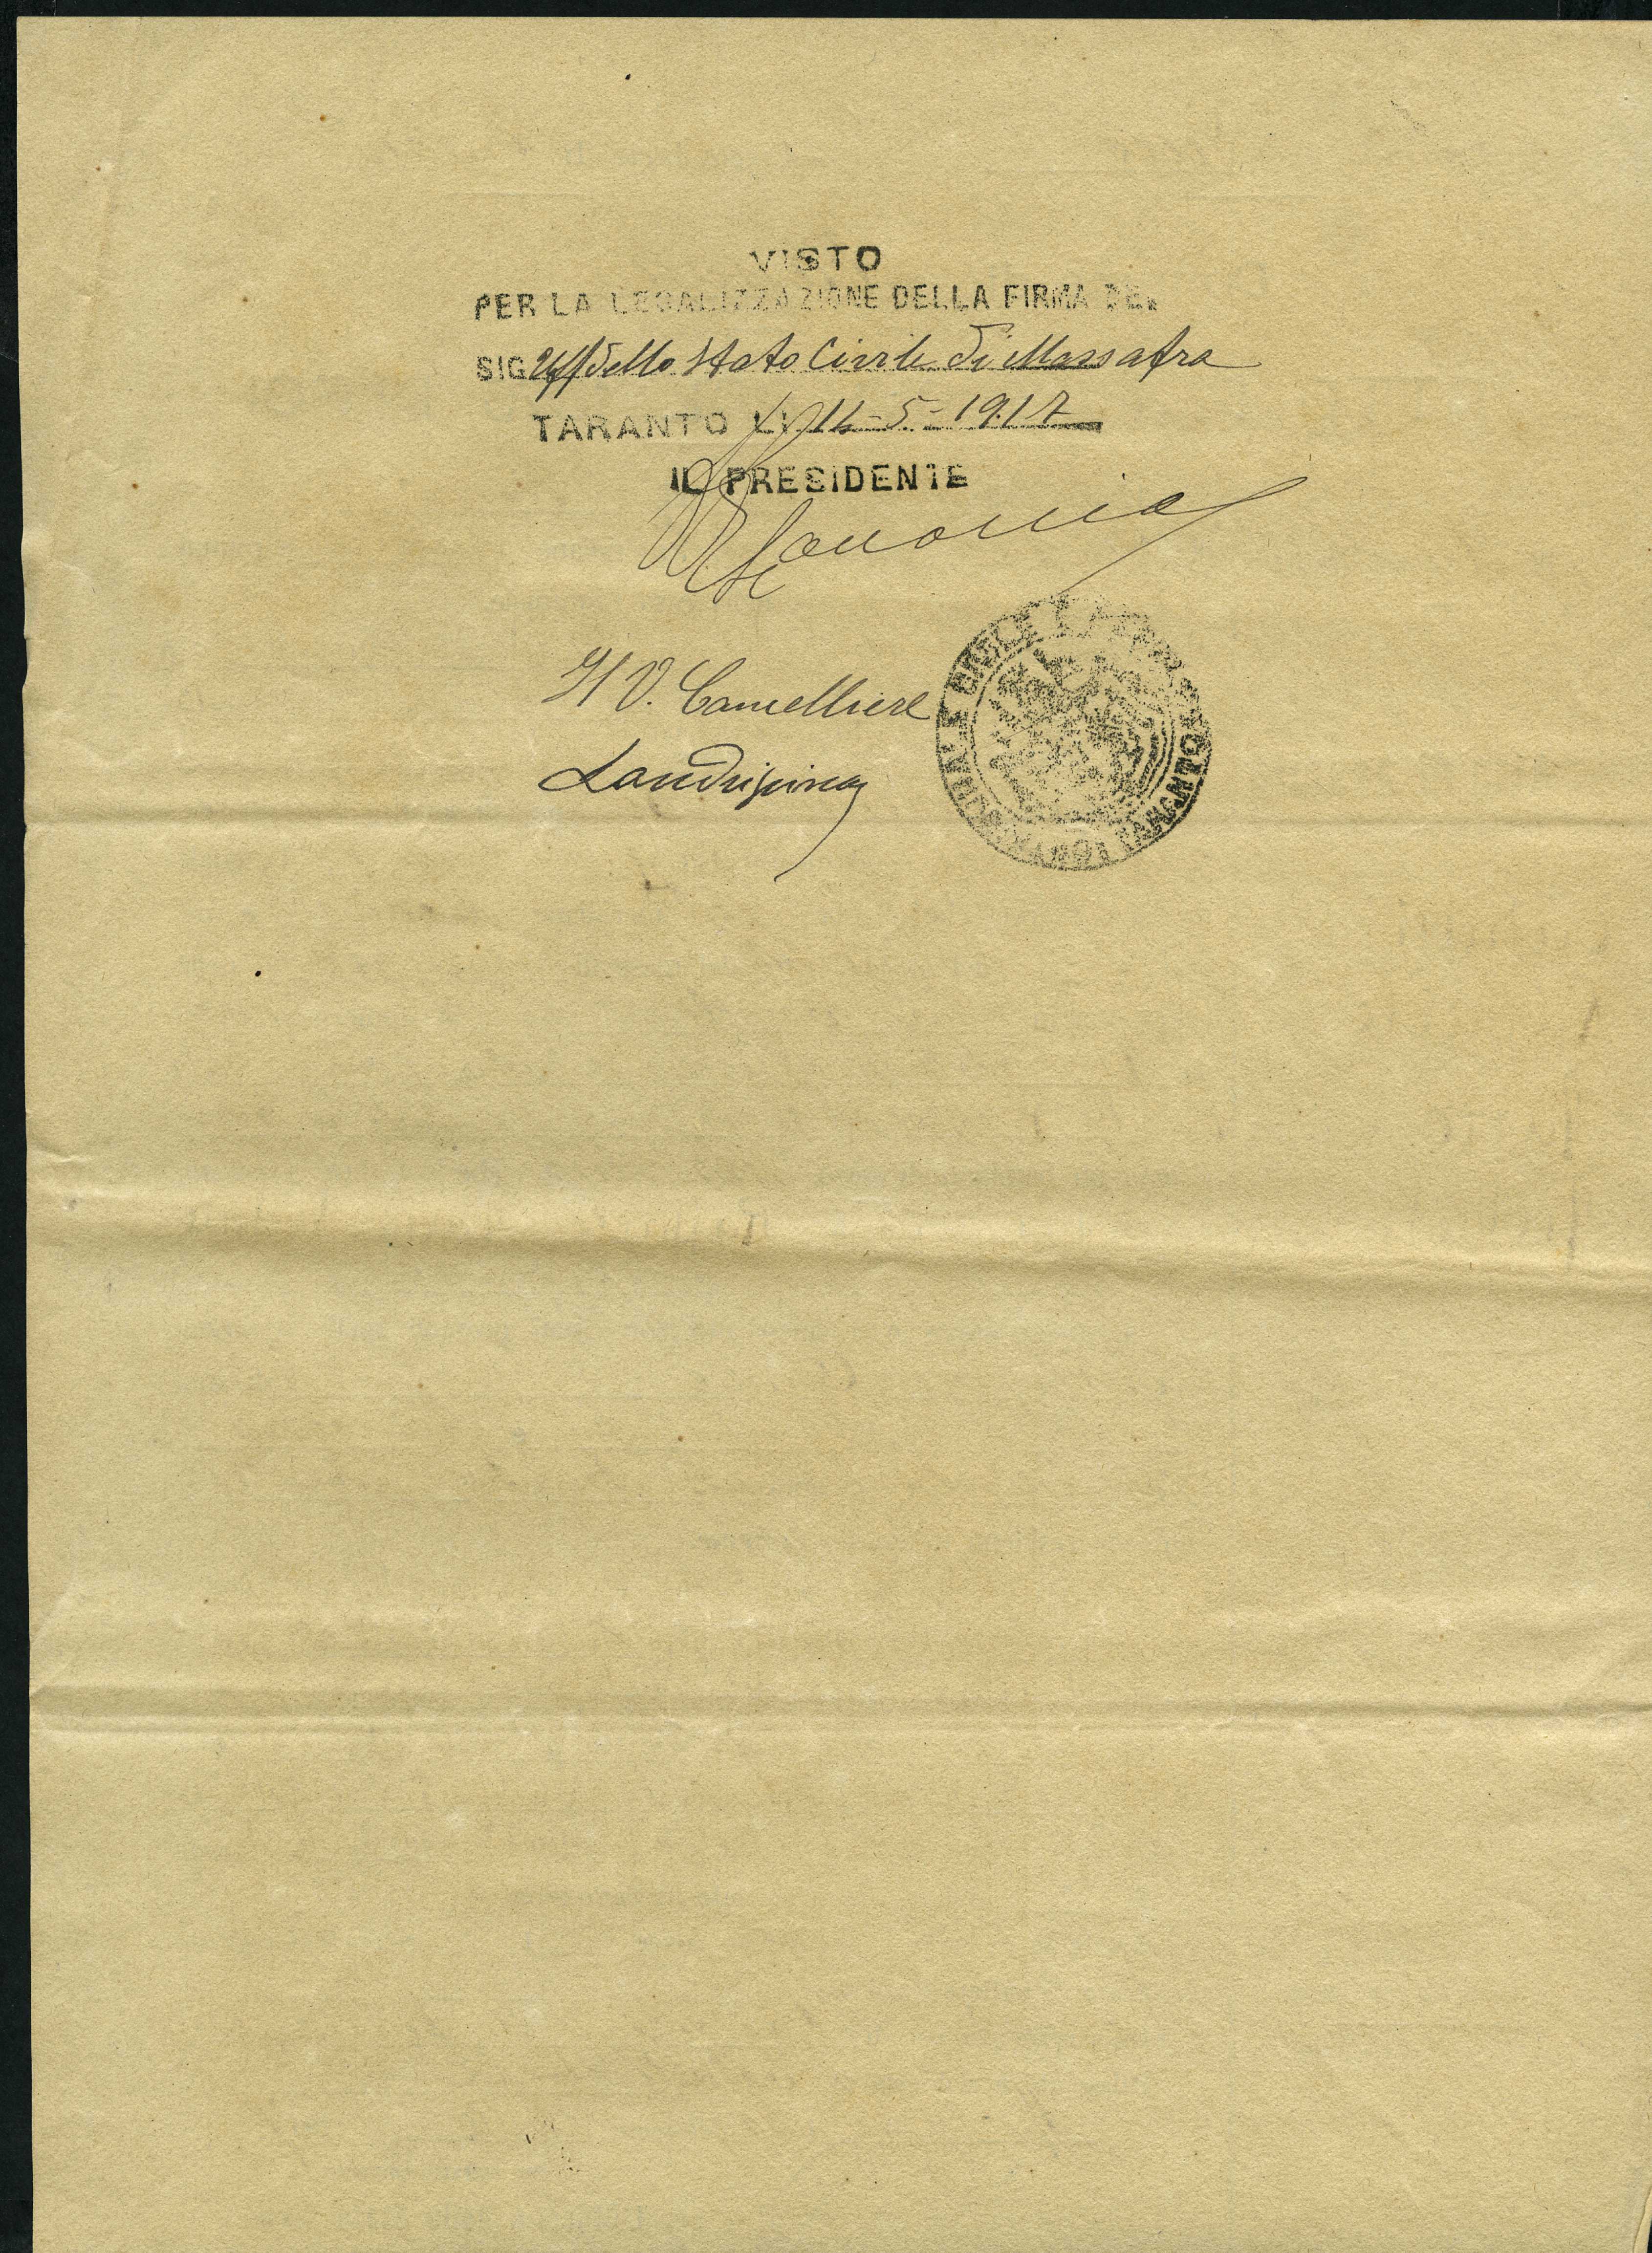 VISTO
PER LA LEGALIZZAZIONE DELLA FIRMA DEL
SIG Uff dello Stato Civile di Massafra
TARANTO LI 14-5-1917
IL PRESIDENTE
Il V. Cancelliere
TRIBUNALE CIVILE E PENALE TARANTO